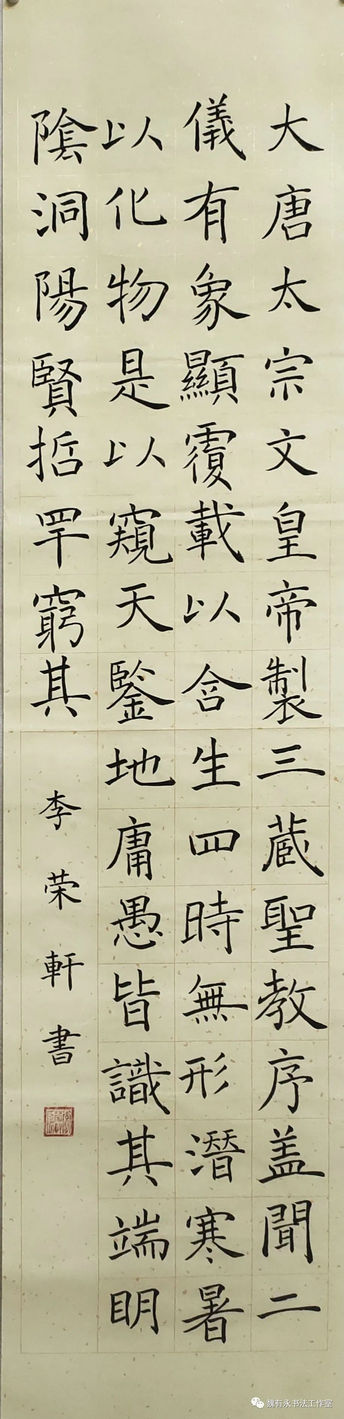 大唐太宗文皇帝製三蔵聖教序盖聞二
儀有象顯覆載以含生四時無形潛寒暑
以化物是以窺天鑒地庸愚皆識其端明
陰洞陽賢哲罕窮其
李荣軒書
魏有永书法工作室